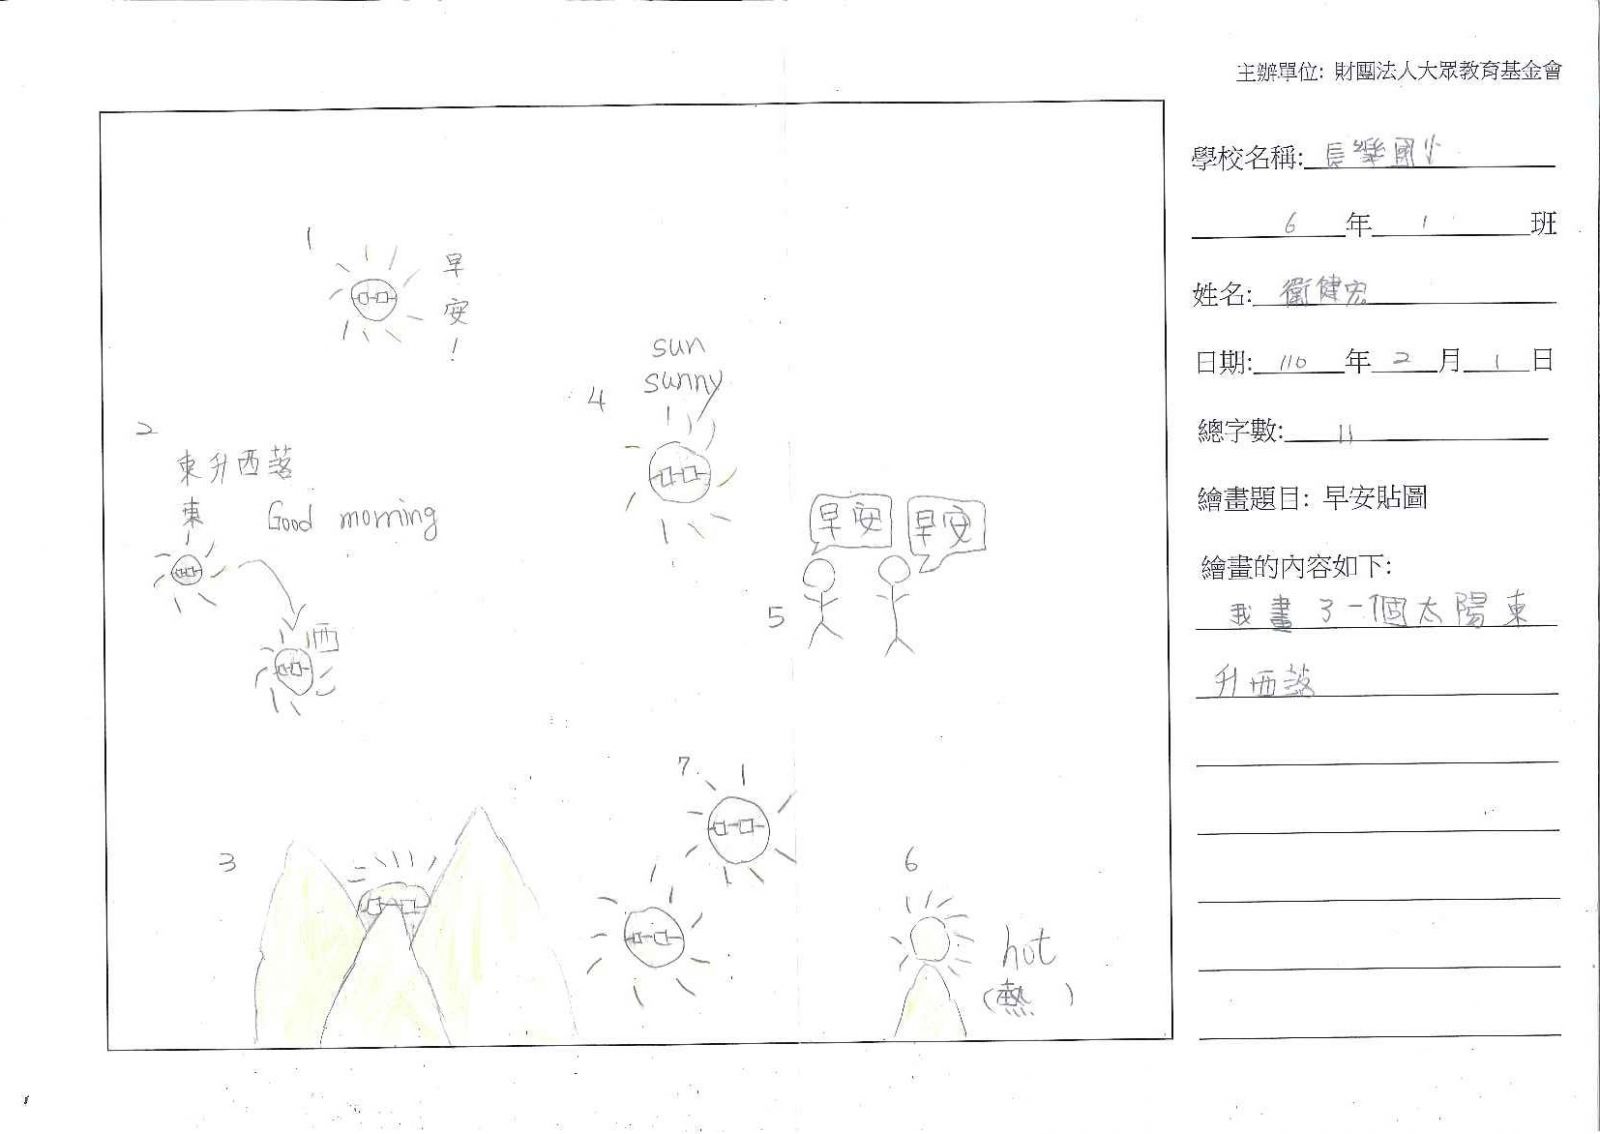 主辦單位: 財團法人大眾教育基金會
學校名稱: 長樂國小
6 年 1 班
姓名: 衛健宏
日期: 110 年 2 月 1 日
總字數: 11
繪畫題目: 早安貼圖
繪畫的內容如下:
我畫了一個太陽東
升西落
1
早安!
2
東升西落
東
Good morning
西
3
4
sun
sunny
5
早安
早安
6
hot
(熱)
7